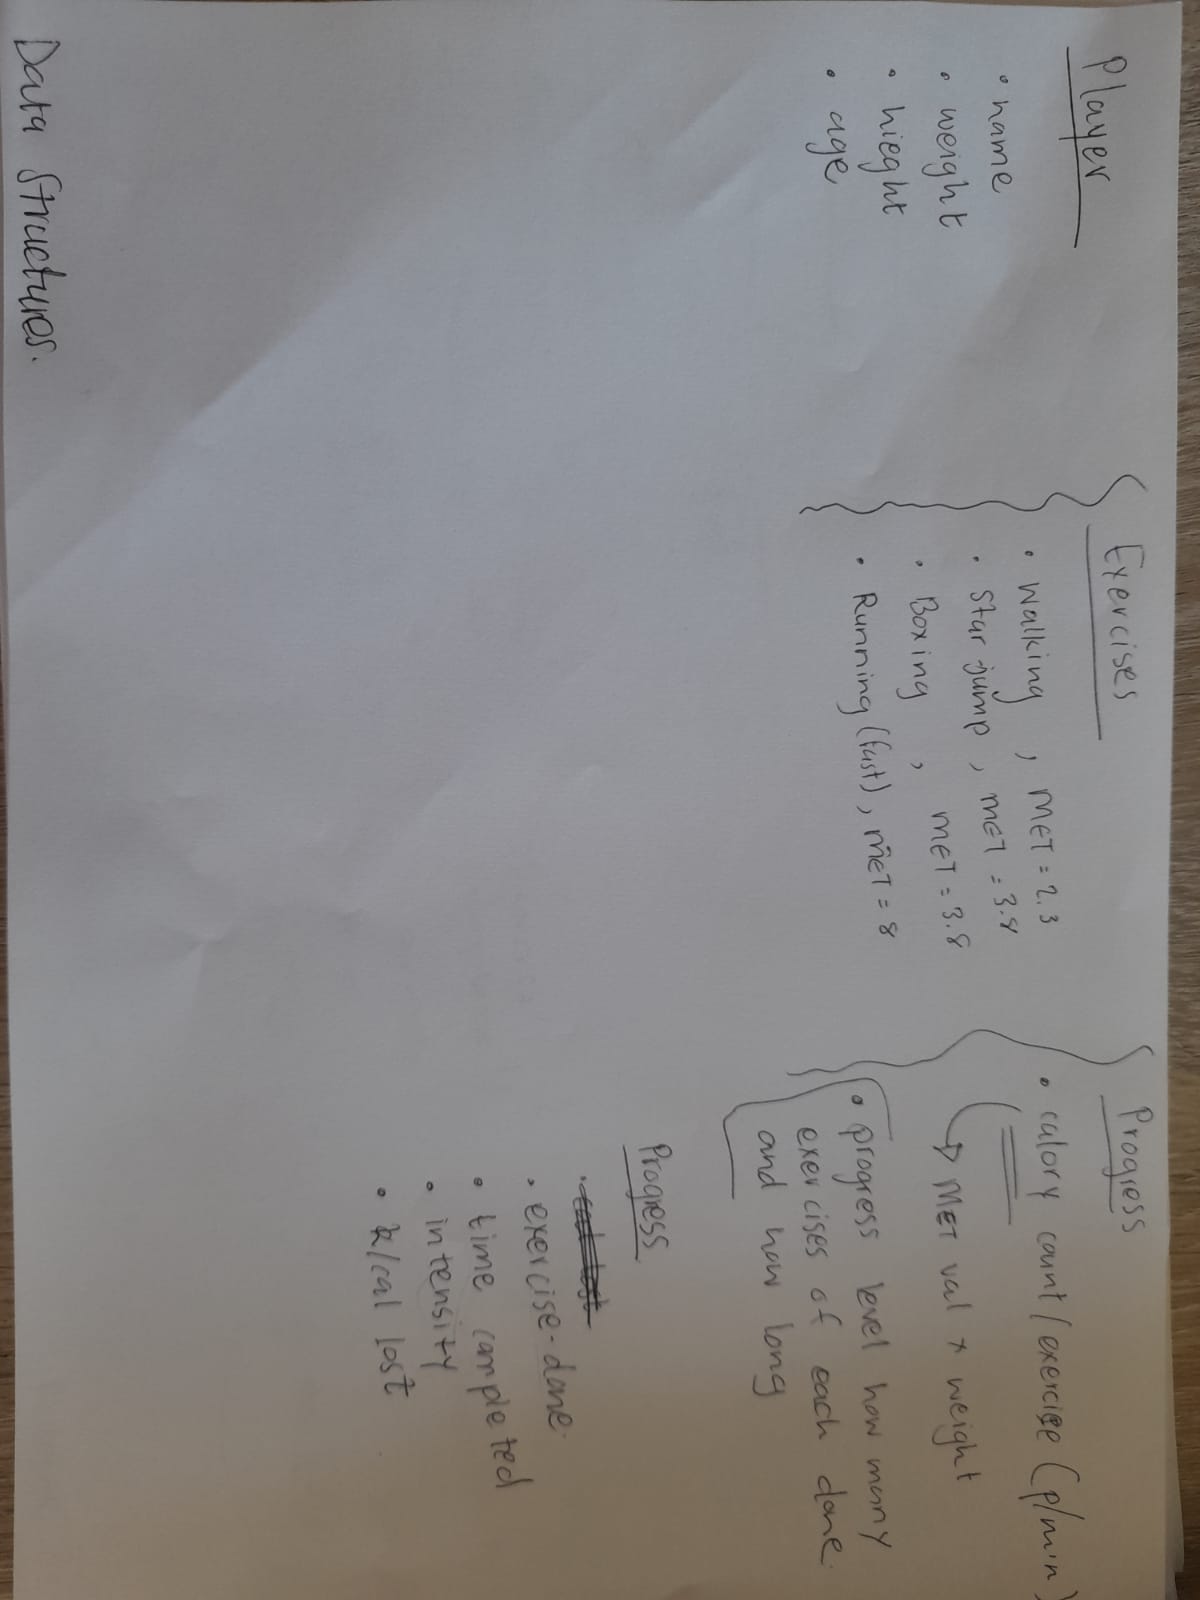 Player
• name
• weight
• hieght
• age
Exercises
• Walking , MET = 2.3
• Star-jump , MET = 3.8
• Boxing , MET = 3.8
• Running (fast), MET = 8
Progress
• calory count/exercise (p/min)
MET val x weight
• progress level how many
exercises of each done.
and how long
Progress
• exercise-done.
• time completed
• intensity
• k/cal lost
Data Structures.